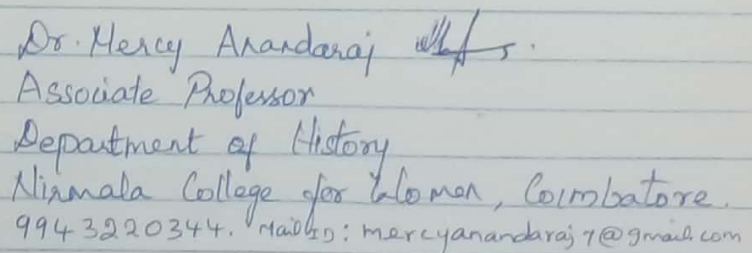 Dr. Mercy Anandaraj
Associate Professor
Department of History
Nirmala College for Women, Coimbatore.
9943220344. Mail ID: mercyanandaraj7@gmail.com